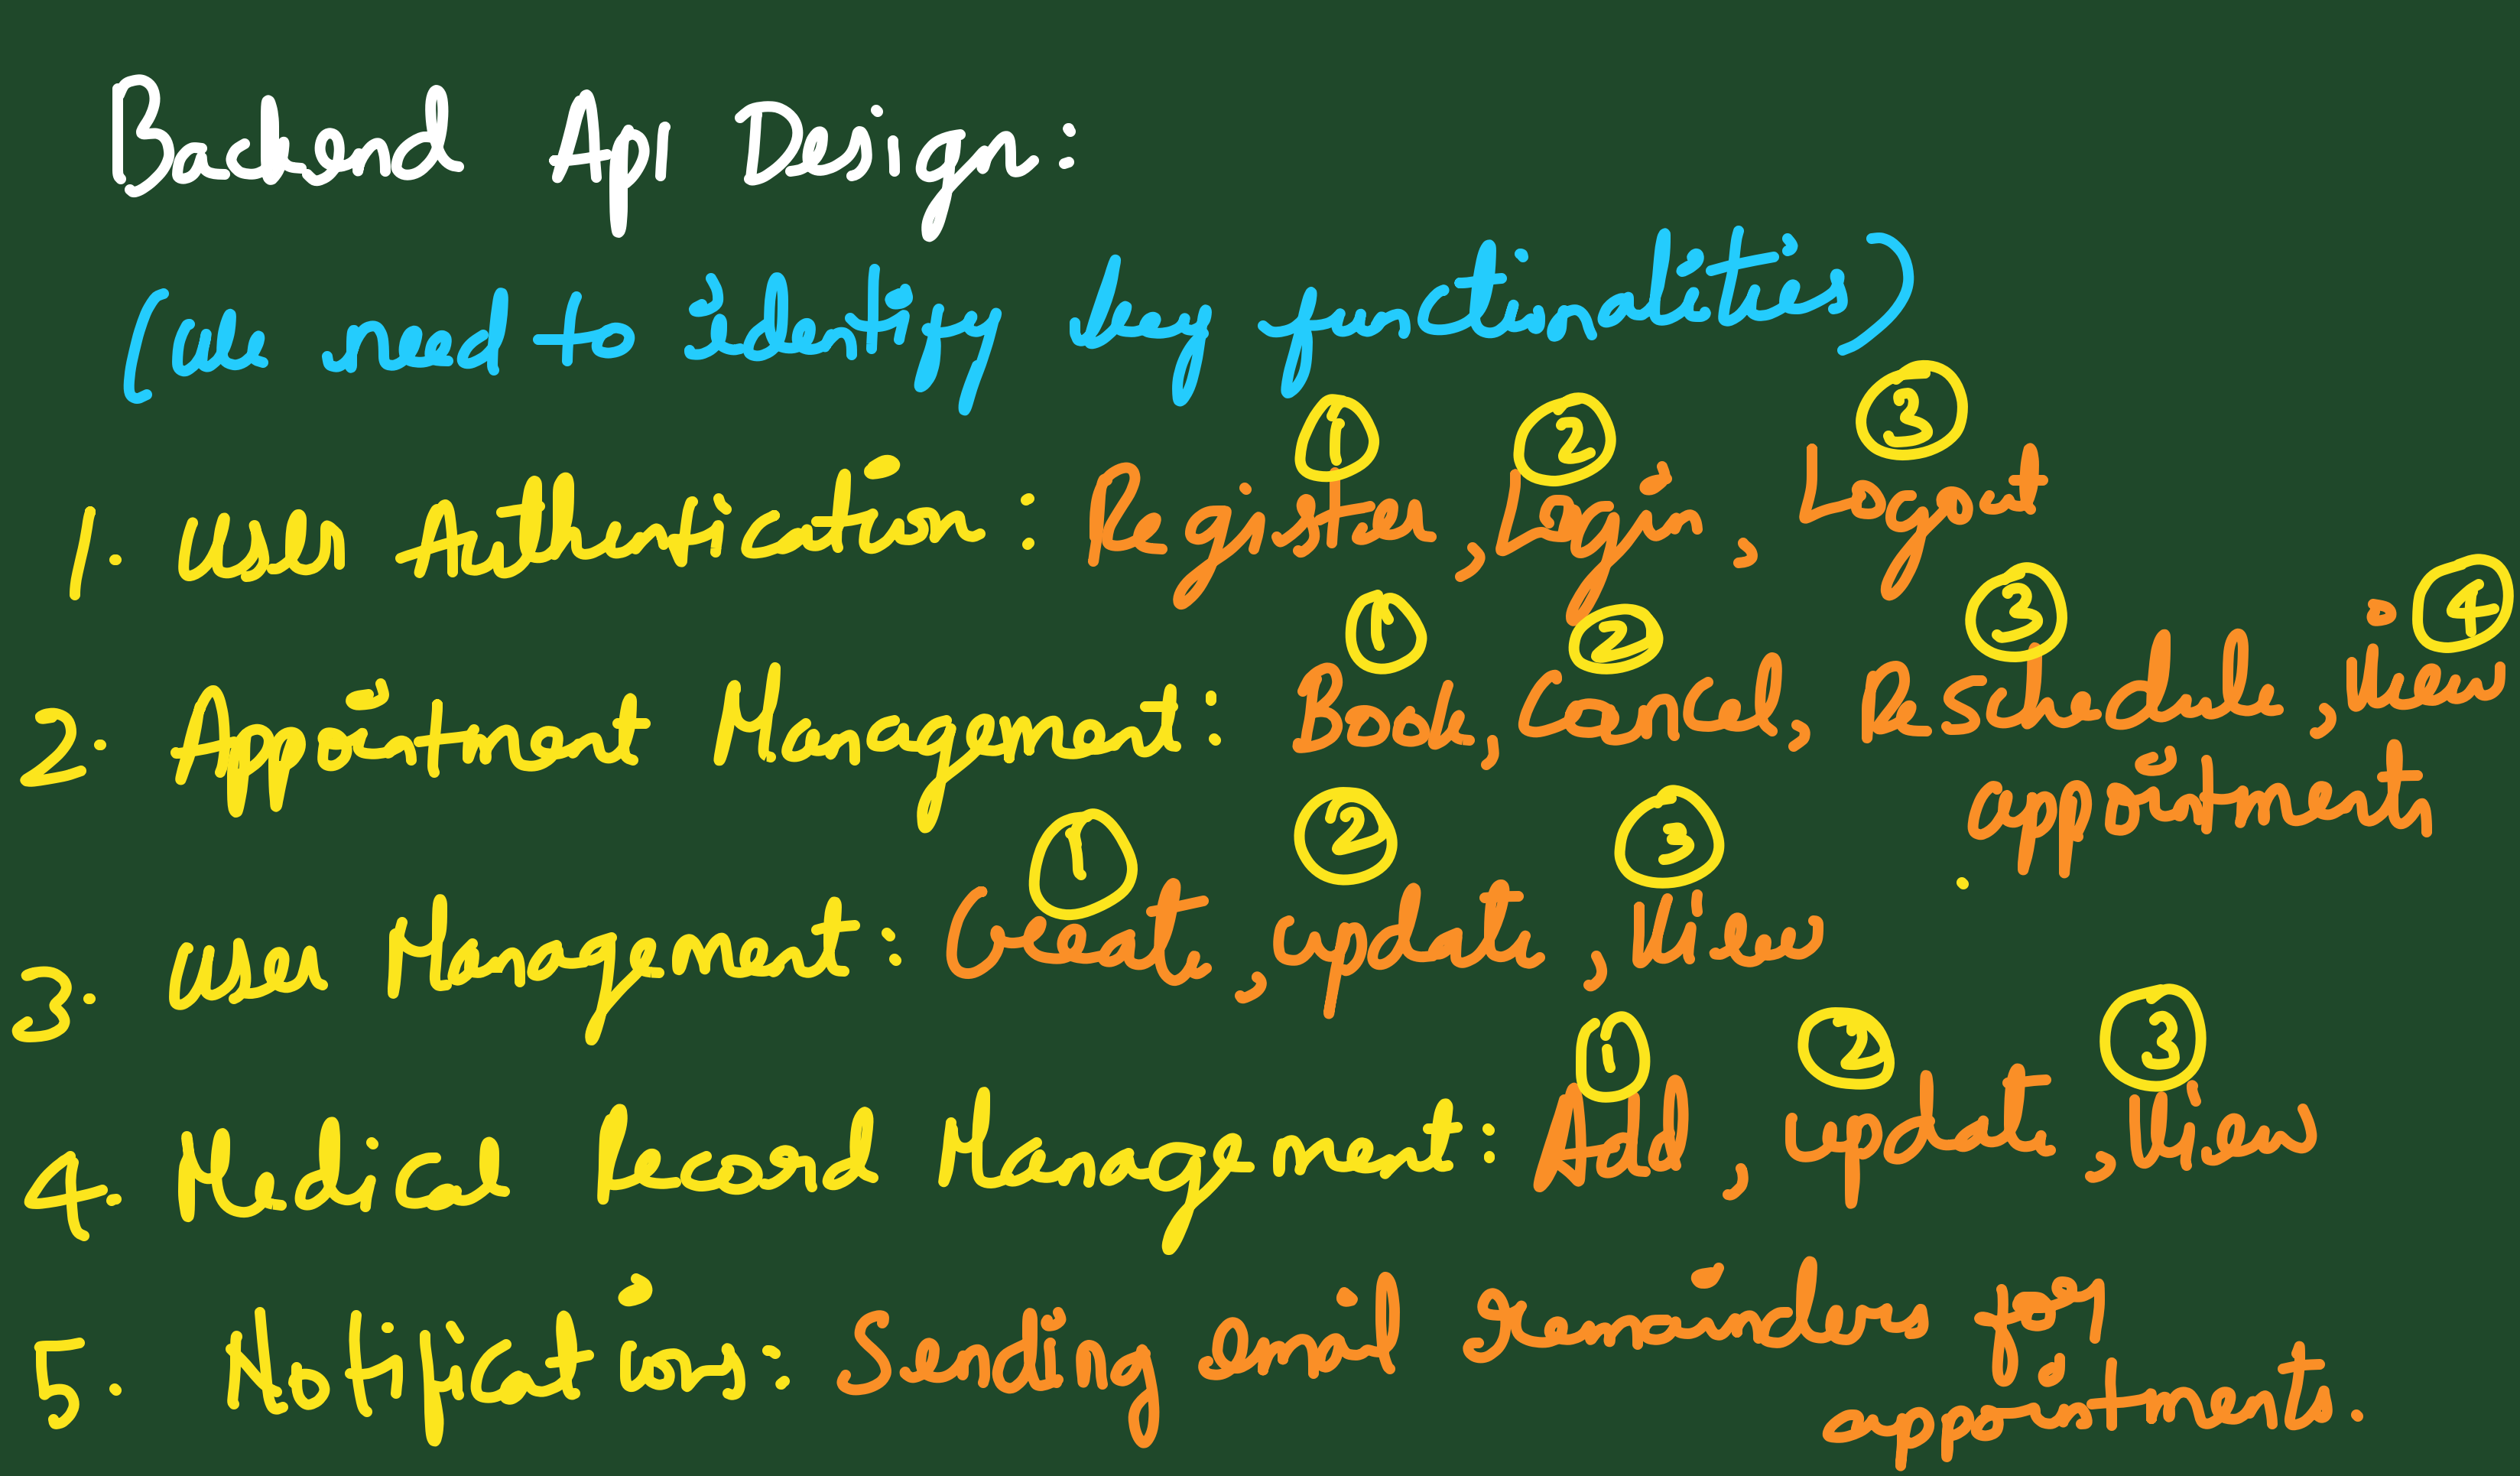 Backend Api Design:
(we need to identify key functionalities)
① ② ③
1. User Authentication: Register, Login, Logout
① ② ③ ④
2. Appointment Management: Book, Cancel, Reschedule, View
appointment
① ② ③
3. User Management: Create, update, View
① ② ③
4. Medical Record Management: Add, update, View
5. Notifications: Sending email remainders for
appointments.